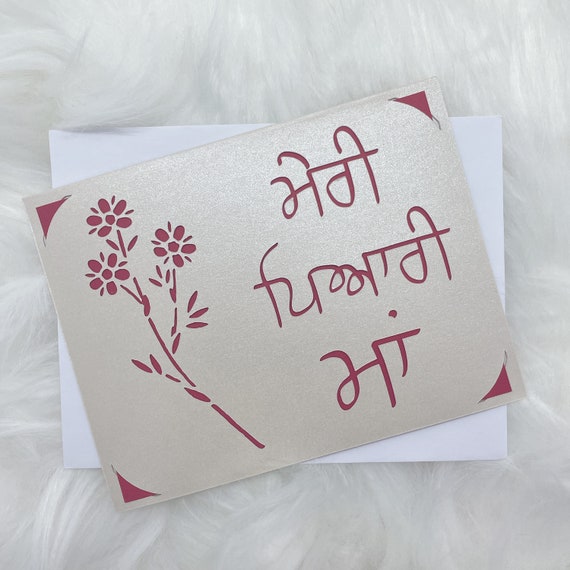 ਮੇਰੀ
ਪਿਆਰੀ
ਮਾਂ